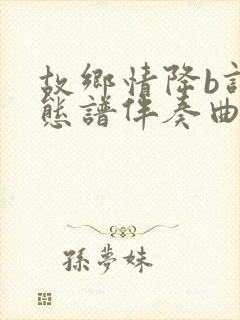 故鄉情降b調動
態譜伴奏曲
孫夢妹